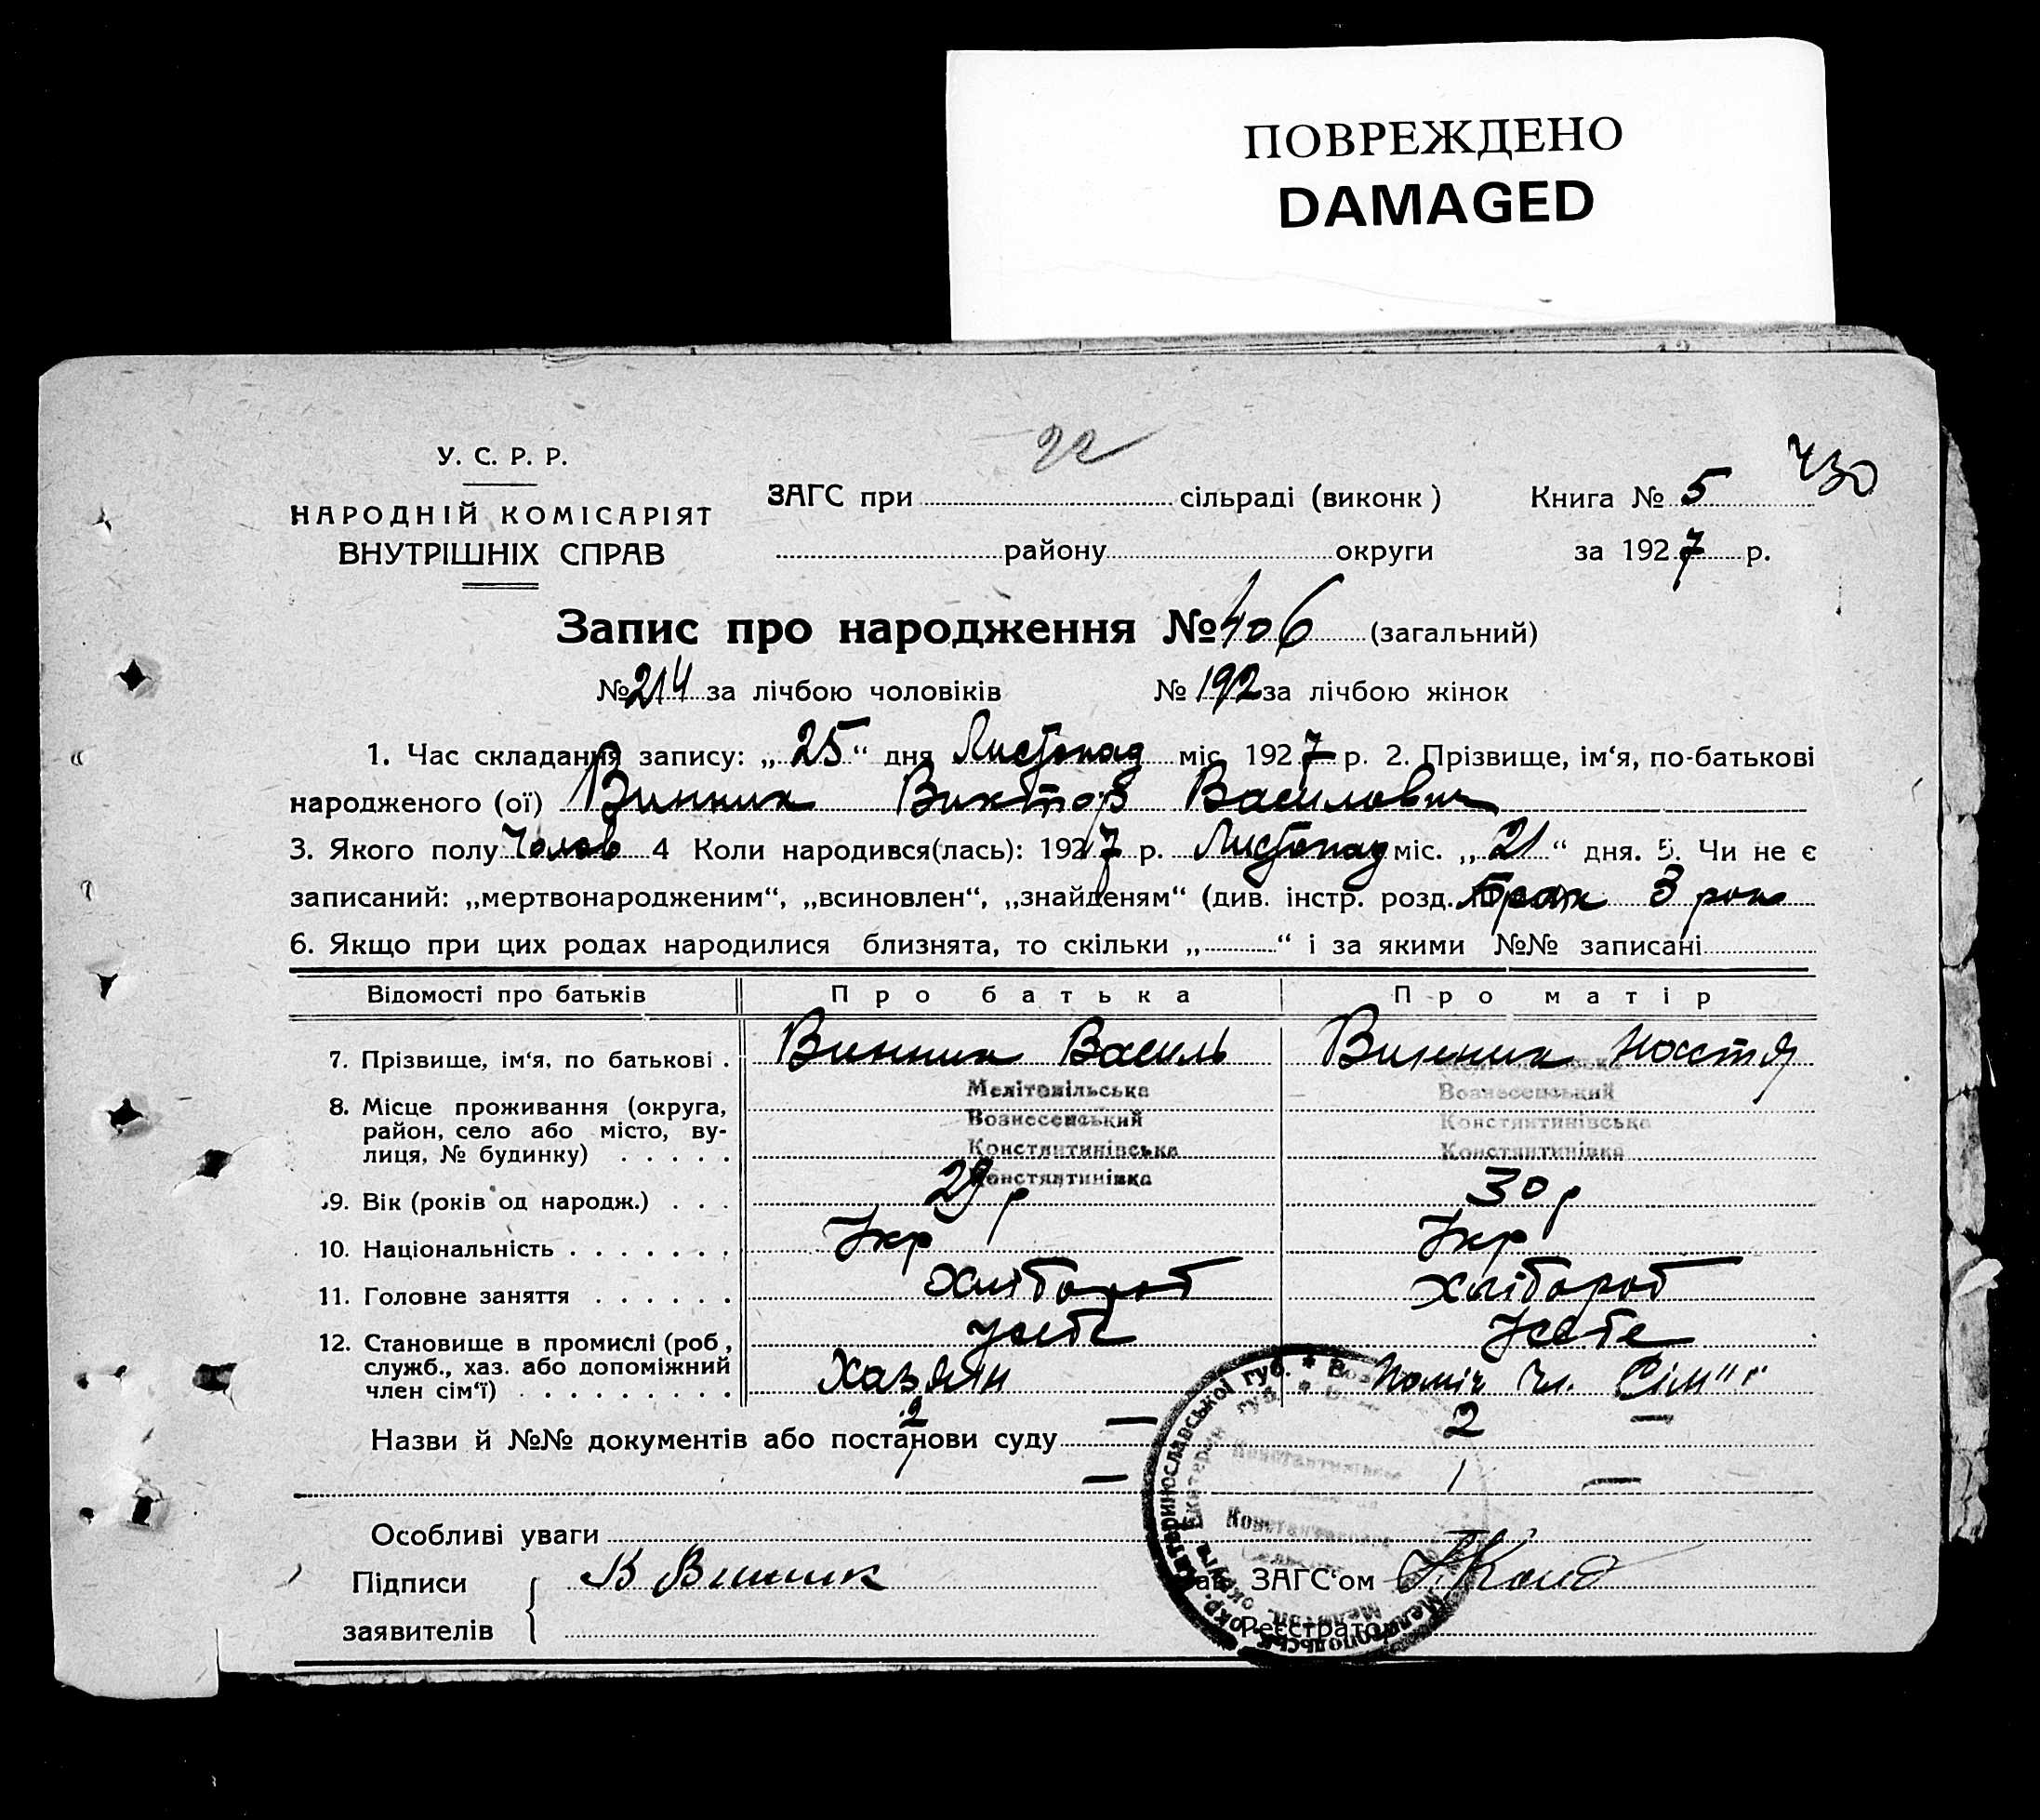 ПОВРЕЖДЕНО
DAMAGED
У. С. Р. Р.
НАРОДНІЙ КОМІСАРІЯТ
ВНУТРІШНІХ СПРАВ
ЗАГС при сільраді (виконк)
району округи
Книга № 5
430
за 1927 р.
Запис про народження № 406 (загальний)
№ 214 за лічбою чоловіків № 192 за лічбою жінок
1. Час складання запису: „25“ дня Листопад міс. 1927 р. 2. Прізвище, ім‘я, по-батькові
народженого (ої) Винник Виктор Василович
3. Якого полу Чолов 4 Коли народився(лась): 1927 р. Листопад міс. „21“ дня. 5. Чи не є
записаний: „мертвонародженим“, „всиновлен“, „знайденям“ (див. інстр. розд. брак 3 рок
6. Якщо при цих родах народилися близнята, то скільки „ “ і за якими №№ записані
Відомості про батьків Про батька Про матір
7. Прізвище, ім‘я, по батькові . Винник Василь Винник Настя
8. Місце проживання (округа, район, село або місто, вулиця, № будинку) . . . . .
Мелітопільська
Вознесенський
Константинівська
Константинівка
Мелітопільська
Вознесенський
Константинівська
Константинівка
9. Вік (років од народж.) . . . 29 р 30 р
10. Національність . . . . . . . Укр Укр
11. Головне заняття . . . . . . Хлібороб Хлібороб
12. Становище в промислі (роб, служб., хаз. або допоміжний член сім‘ї) . . . . . . . . .
Хазяїн
Поміч чл. Сім
Назви й №№ документів або постанови суду 2 — 2 —
— 1 —
Особливі уваги
Підписи
заявителів
В Винник
Зав. ЗАГС‘ом
Реєстратор